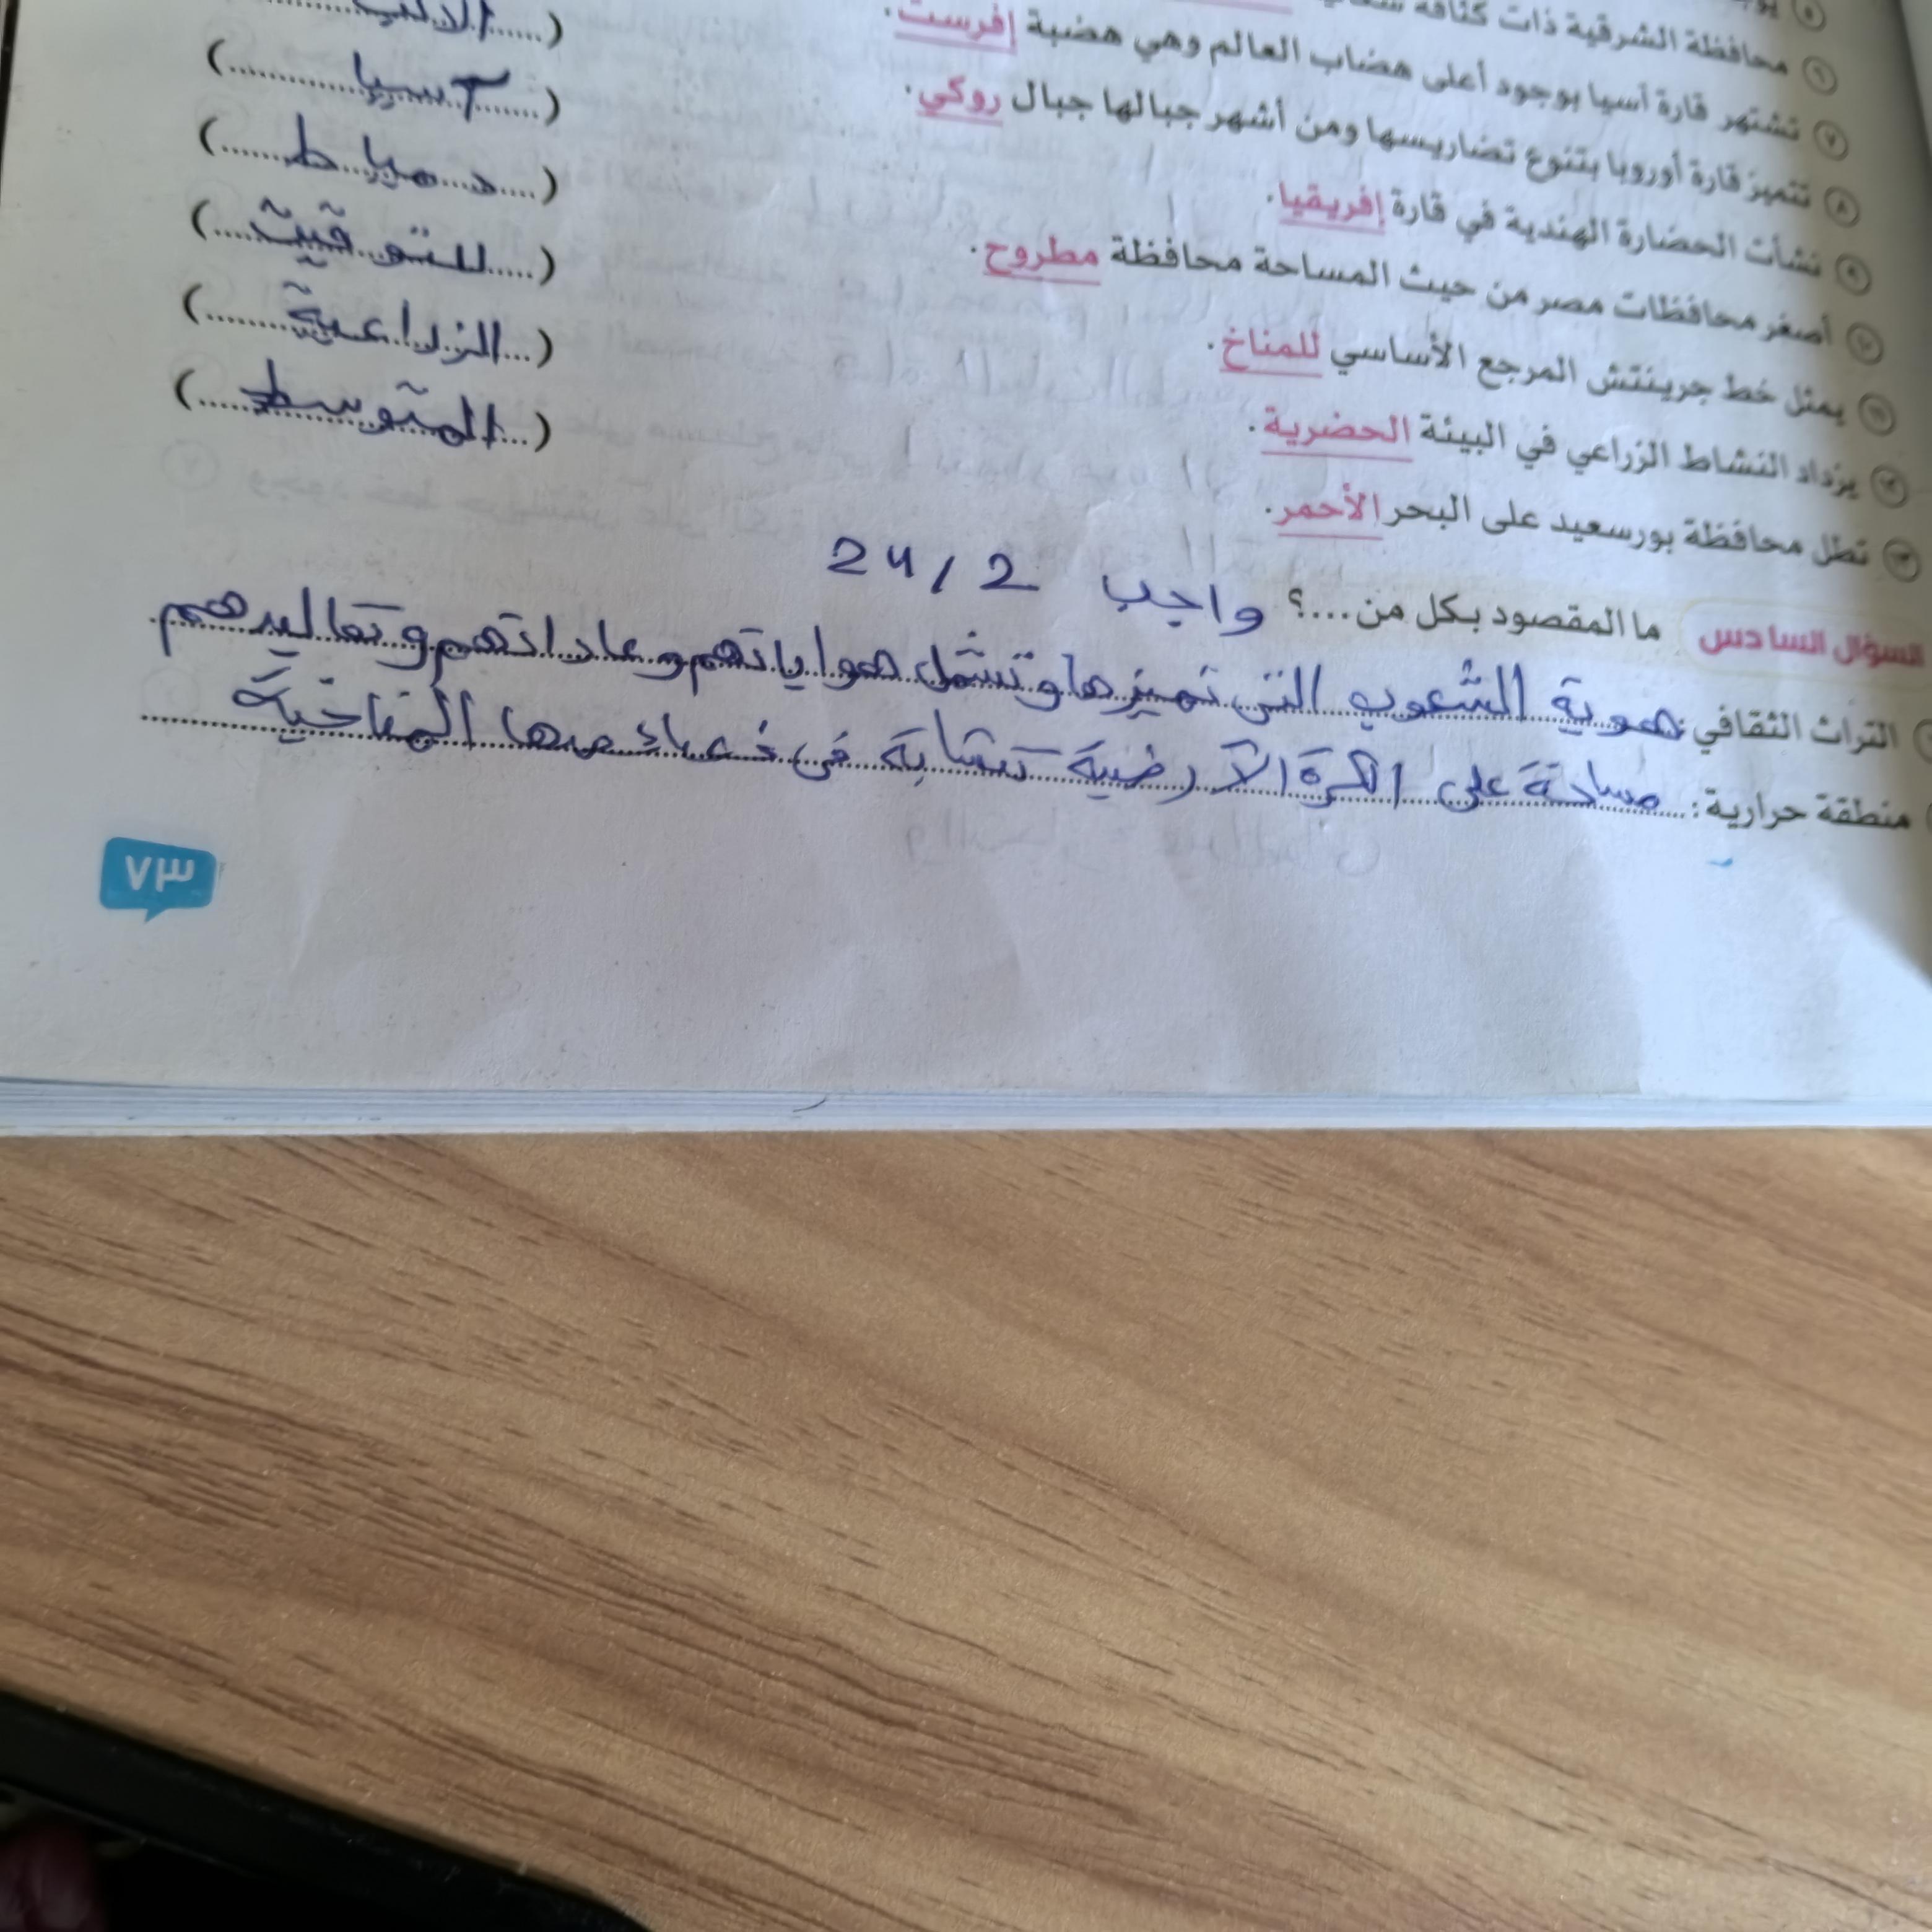 محافظة الشرقية ذات كثافة
٧ تشتهر قارة آسيا بوجود أعلى هضاب العالم وهي هضبة إفرست.
٨ تتميز قارة أوروبا بتنوع تضاريسها ومن أشهر جبالها جبال روكي. (الألب)
٩ نشأت الحضارة الهندية في قارة إفريقيا. (آسيا)
١٠ أصغر محافظات مصر من حيث المساحة محافظة مطروح. (دمياط)
١١ يمثل خط جرينتش المرجع الأساسي للمناخ. (للتوقيت)
١٢ يزداد النشاط الزراعي في البيئة الحضرية. (الزراعية)
١٣ تطل محافظة بورسعيد على البحر الأحمر. (المتوسط)
السؤال السادس ما المقصود بكل من....؟ واجب 2 / 24
التراث الثقافي: هوية الشعوب التى تميزها وتشمل هواياتهم وعاداتهم وتقاليدهم
منطقة حرارية: مساحة على الكرة الأرضية تتشابة فى خصائصها المناخية
٧٣